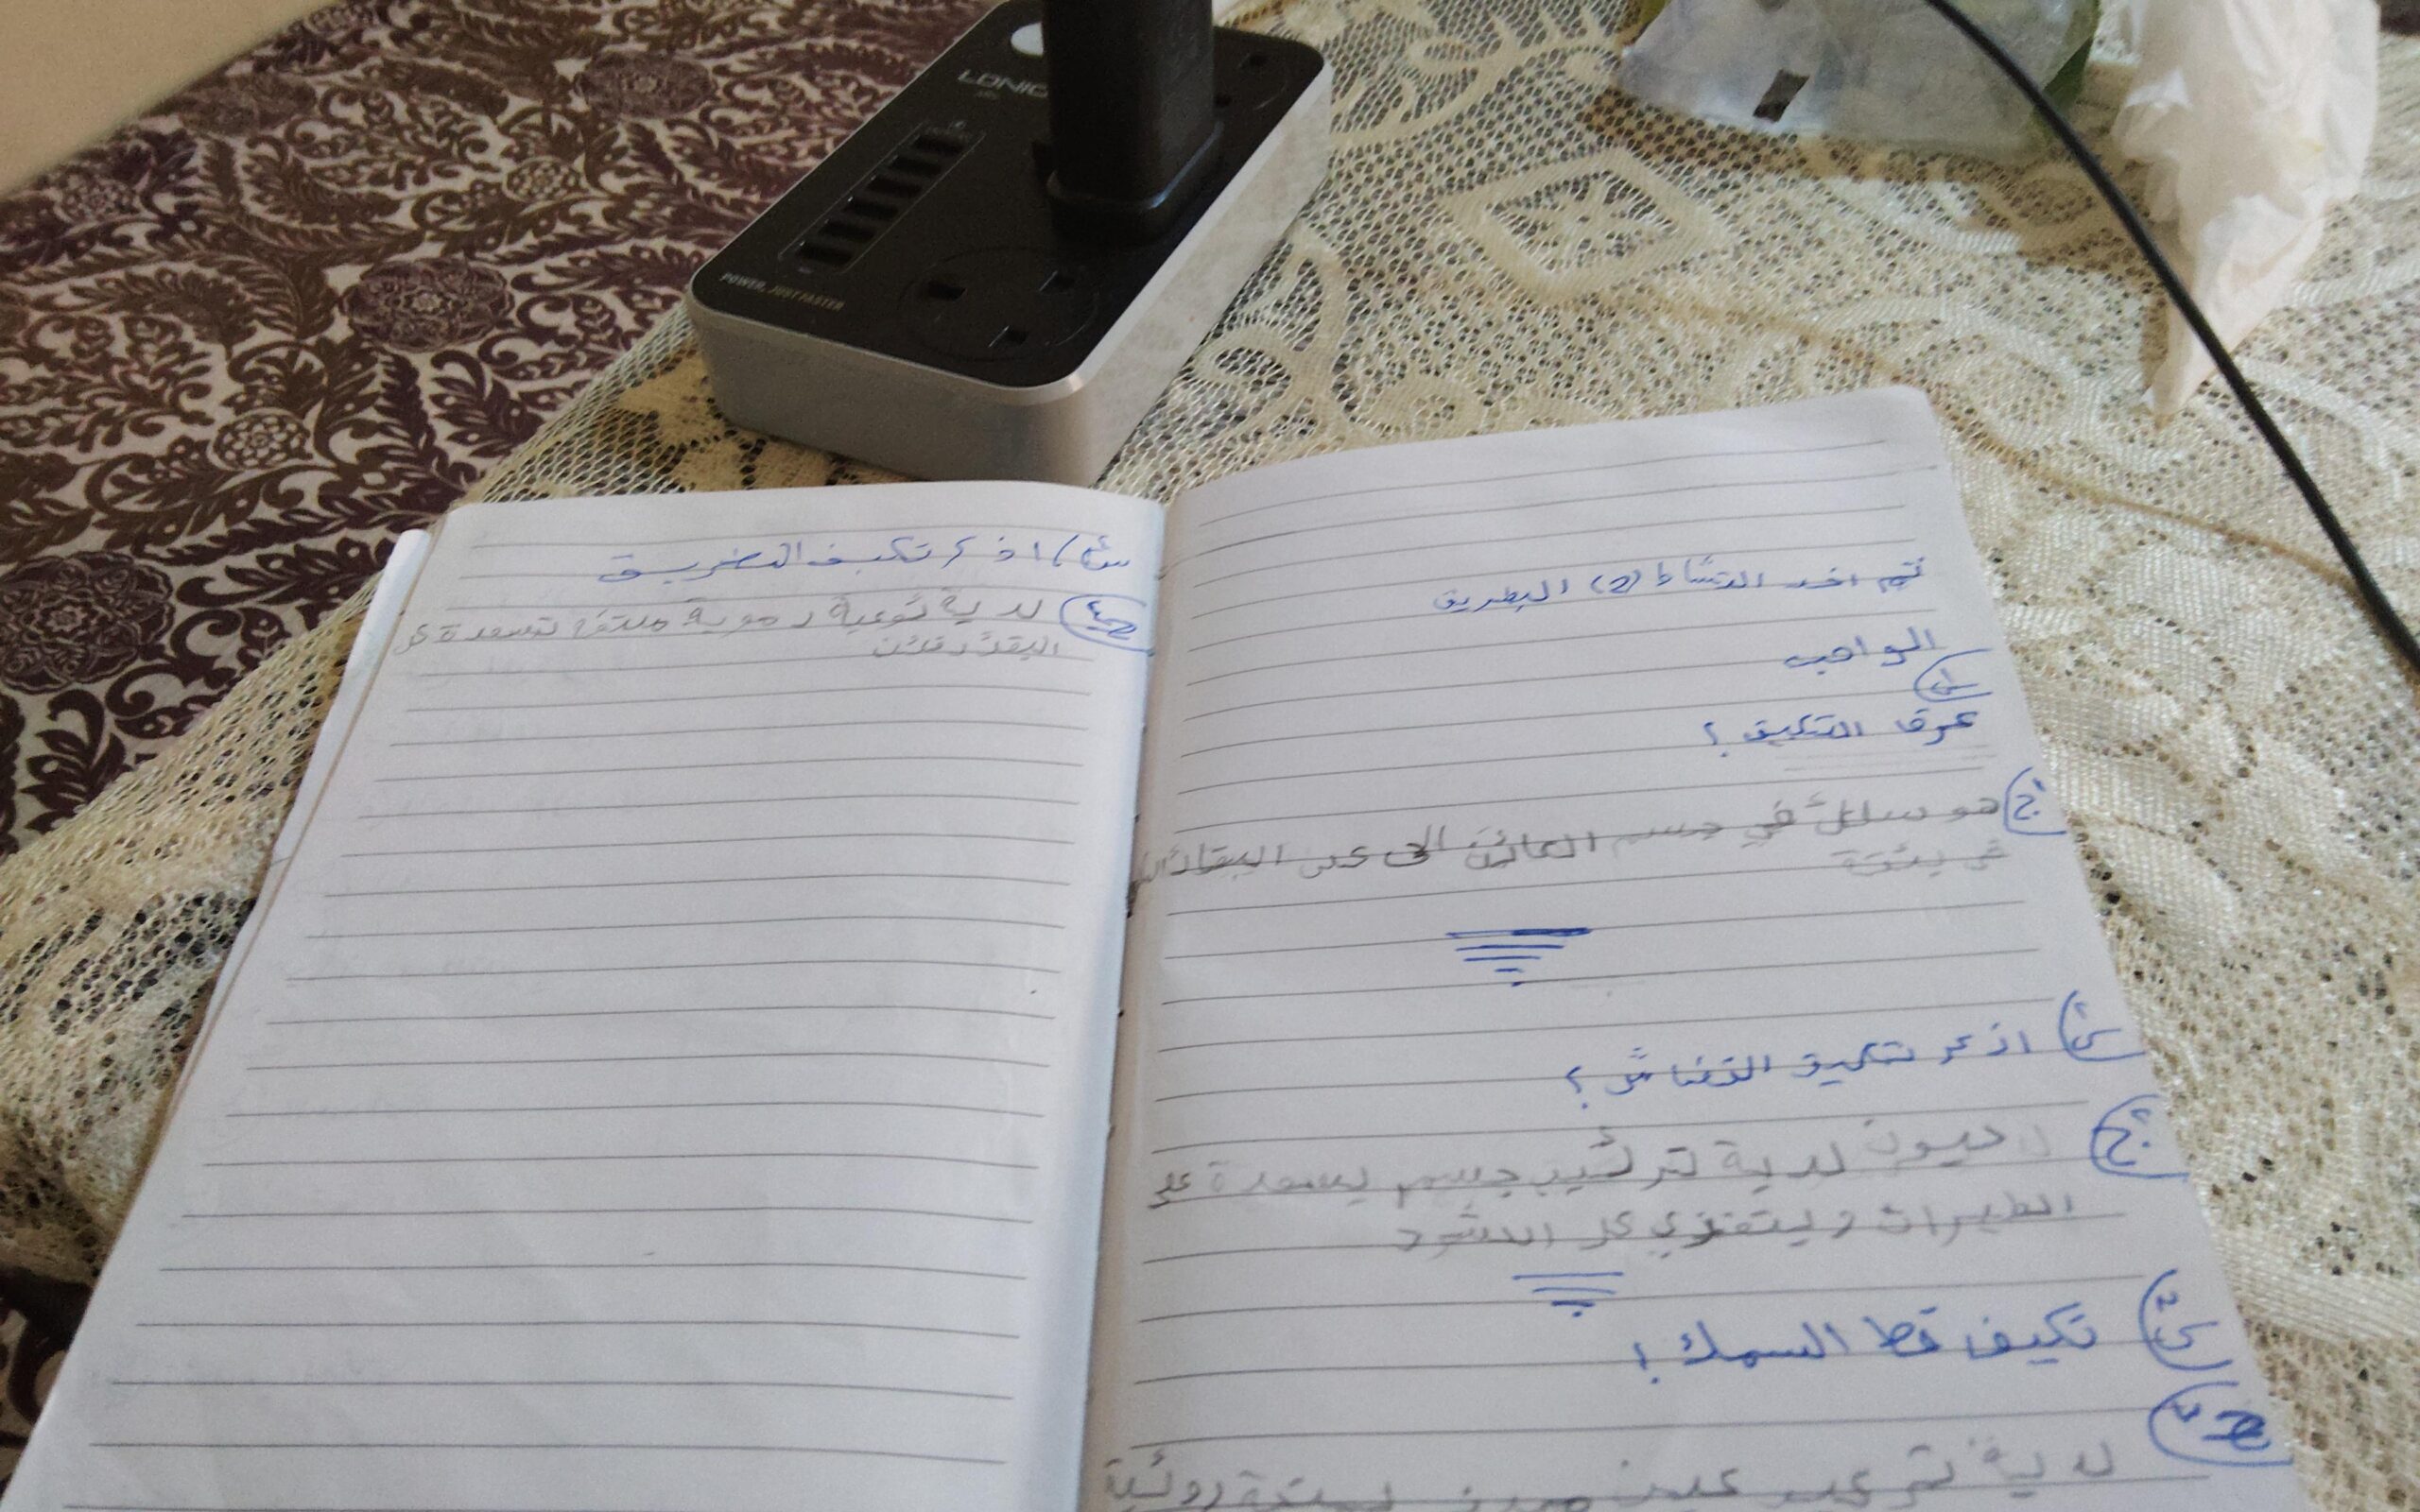 LDNIO
POWER, JUST FASTER
تم اخد النشاط (2) البطريق
الواجب
س١
عرف التكيف ؟
ج١ هو سلوك في جسم الكائن الحي على البقاء
في بيئته
س٢ اذكر تكيف الخفاش ؟
ج٢ حيوان لدية تركيب جسم يسعدة على
الطيران و يتغذي على الحشرت
س٣ تكيف قط السمك ؟
ج٣ لدية تركيب عين
س٤ اذكر تكيف البطريق
ج٤ لدية اوعية دموية ملتفة تسعدة على
البقاء دفئن